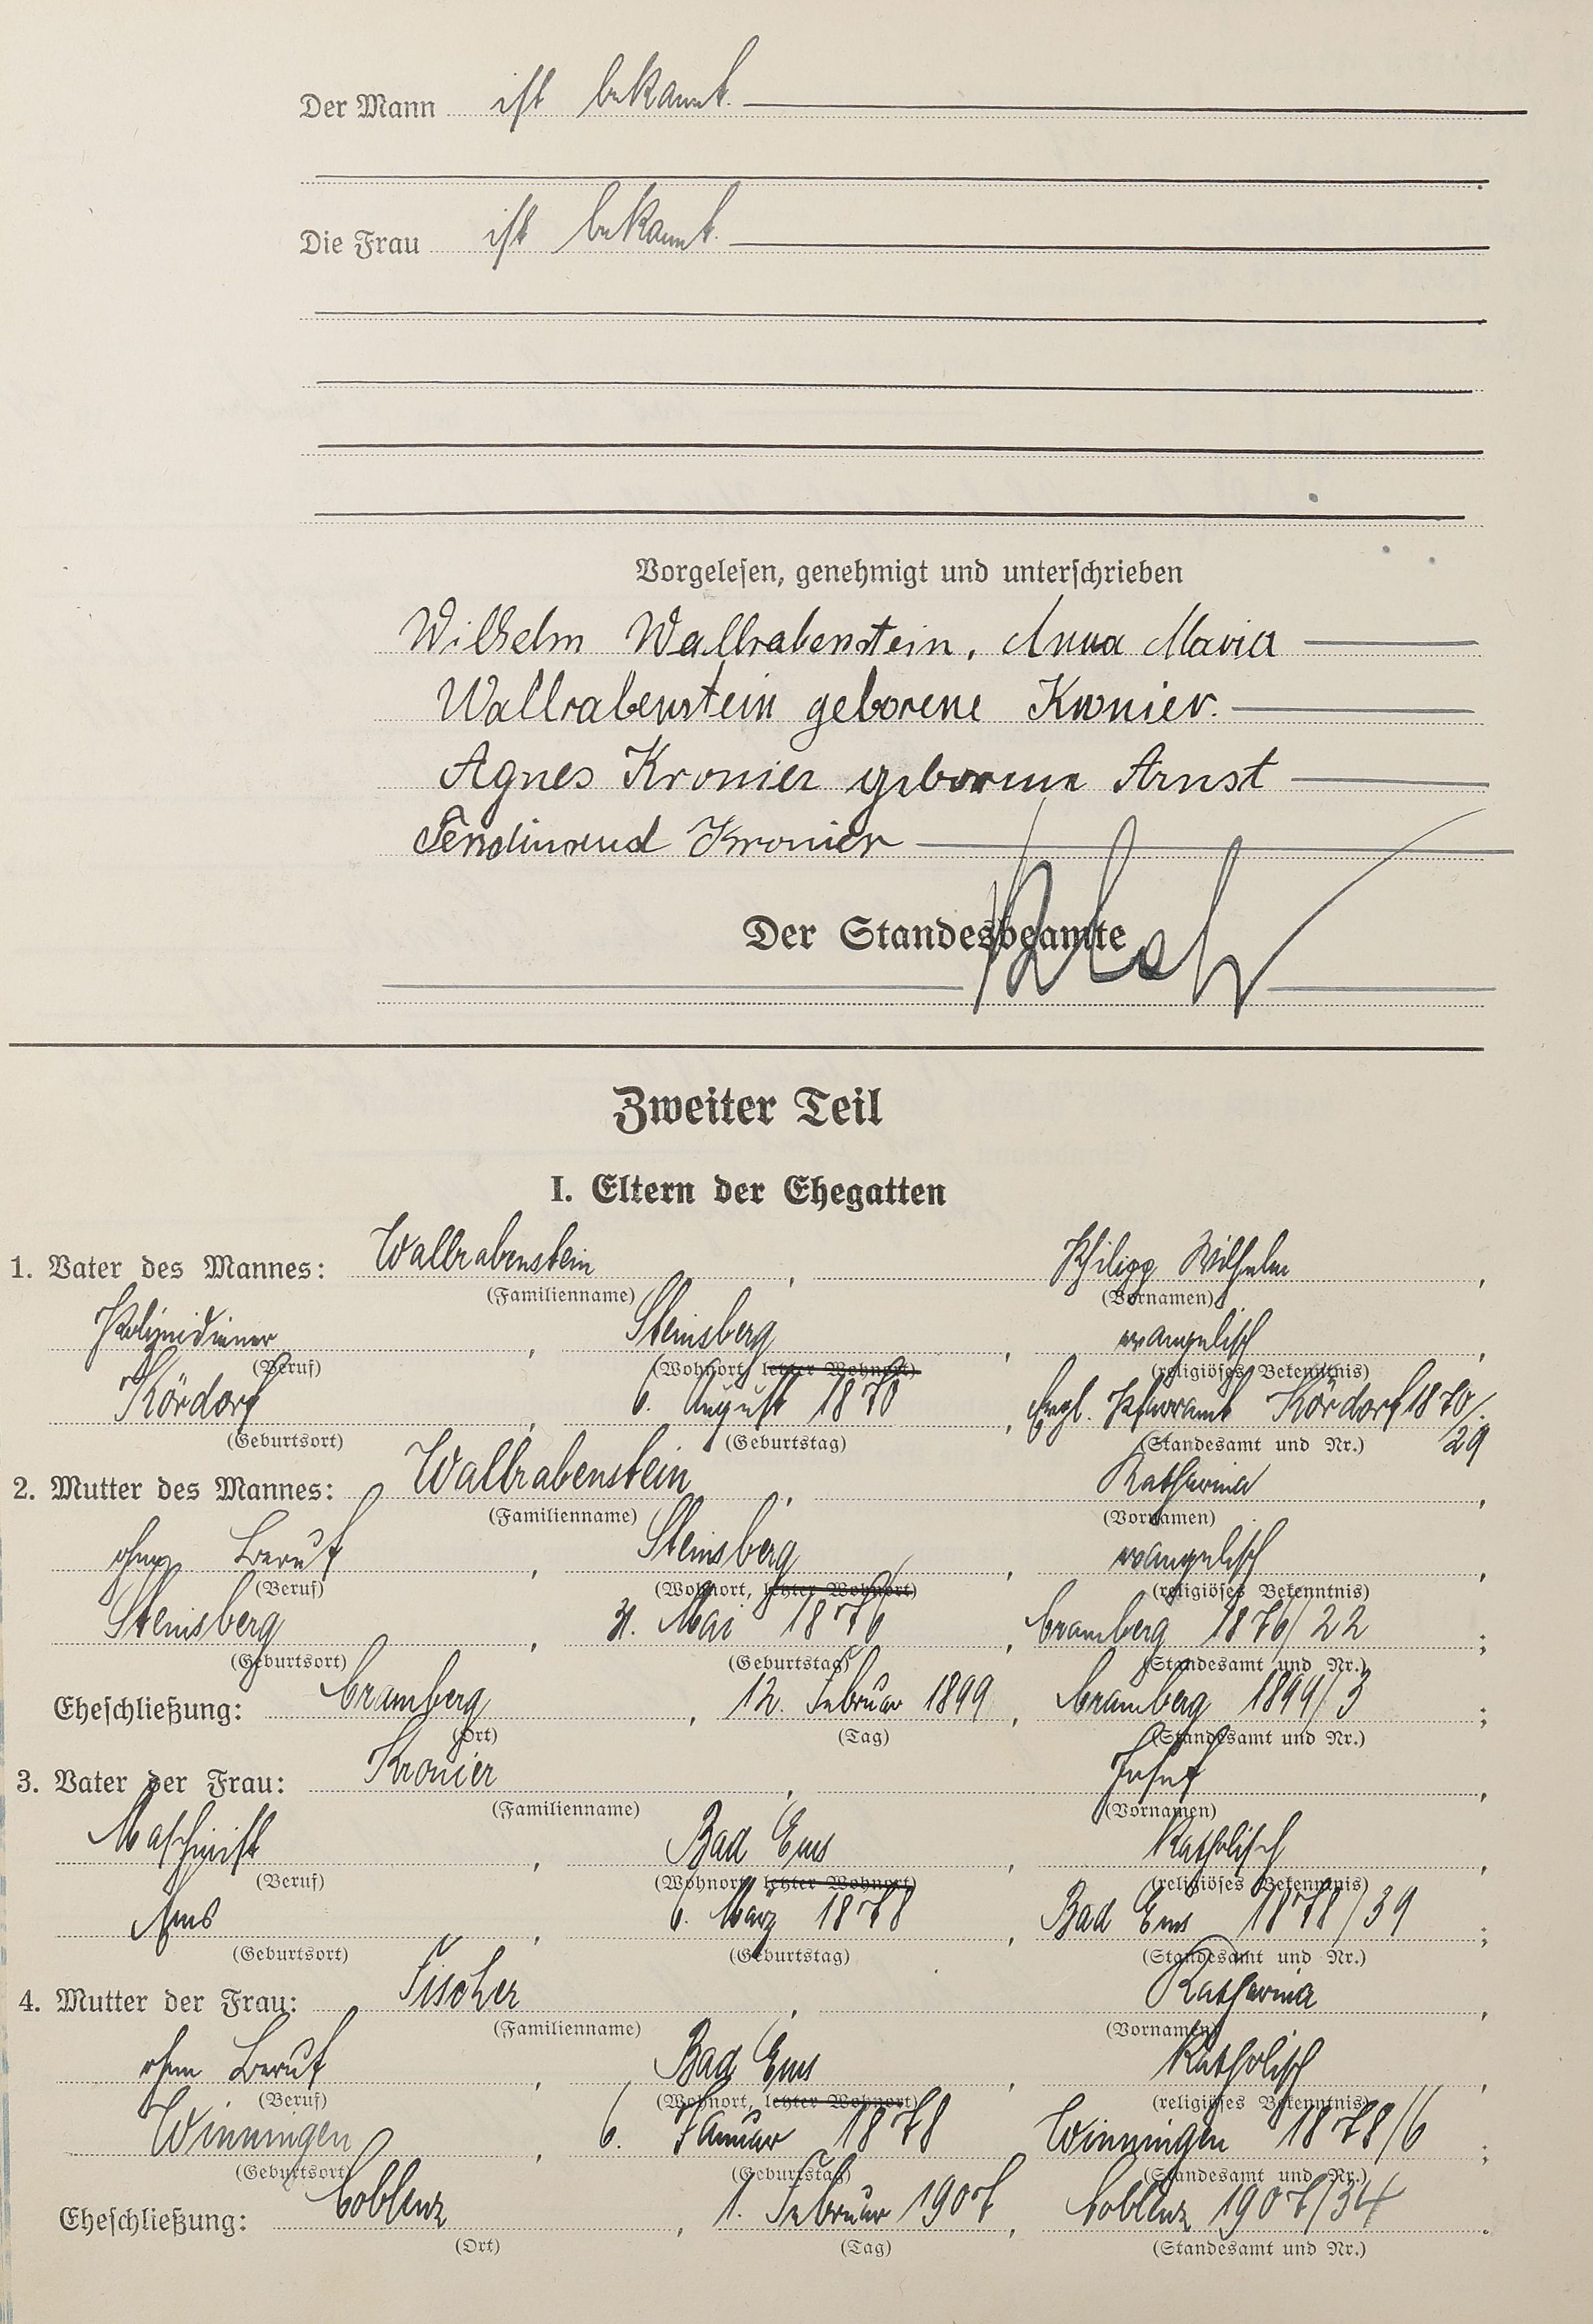 Der Mann ist bekannt.
Die Frau ist bekannt.
Vorgelesen, genehmigt und unterschrieben
Wilhelm Wallrabenstein, Anna Maria
Wallrabenstein geborene Kronier.
Agnes Kronier geborene Arnst
Ferdinand Kronier
Der Standesbeamte
Zweiter Teil
I. Eltern der Ehegatten
1. Vater des Mannes: Wallrabenstein, Philipp Wilhelm,
(Familienname) (Vornamen)
Polizeidiener, Steinsberg, evangelisch,
(Beruf) (Wohnort, letzter Wohnort) (religiöses Bekenntnis)
Kördorf, 6. August 1870, Evgl. Pfarramt Kördorf 1870/29
(Geburtsort) (Geburtstag) (Standesamt und Nr.)
2. Mutter des Mannes: Wallrabenstein, Katharina,
(Familienname) (Vornamen)
ohne Beruf, Steinsberg, evangelisch,
(Beruf) (Wohnort, letzter Wohnort) (religiöses Bekenntnis)
Steinsberg, 31. Mai 1876, Cramberg 1876/22;
(Geburtsort) (Geburtstag) (Standesamt und Nr.)
Eheschließung: Cramberg, 12. Februar 1899, Cramberg 1899/3;
(Ort) (Tag) (Standesamt und Nr.)
3. Vater der Frau: Kronier, Josef,
(Familienname) (Vornamen)
Maschinist, Bad Ems, Katholisch,
(Beruf) (Wohnort, letzter Wohnort) (religiöses Bekenntnis)
Ems, 6. März 1878, Bad Ems 1878/39;
(Geburtsort) (Geburtstag) (Standesamt und Nr.)
4. Mutter der Frau: Fischer, Katharina,
(Familienname) (Vornamen)
ohne Beruf, Bad Ems, Katholisch,
(Beruf) (Wohnort, letzter Wohnort) (religiöses Bekenntnis)
Winningen, 6. Januar 1878, Winningen 1878/6;
(Geburtsort) (Geburtstag) (Standesamt und Nr.)
Eheschließung: Coblenz, 1. Februar 1907, Coblenz 1907/34.
(Ort) (Tag) (Standesamt und Nr.)